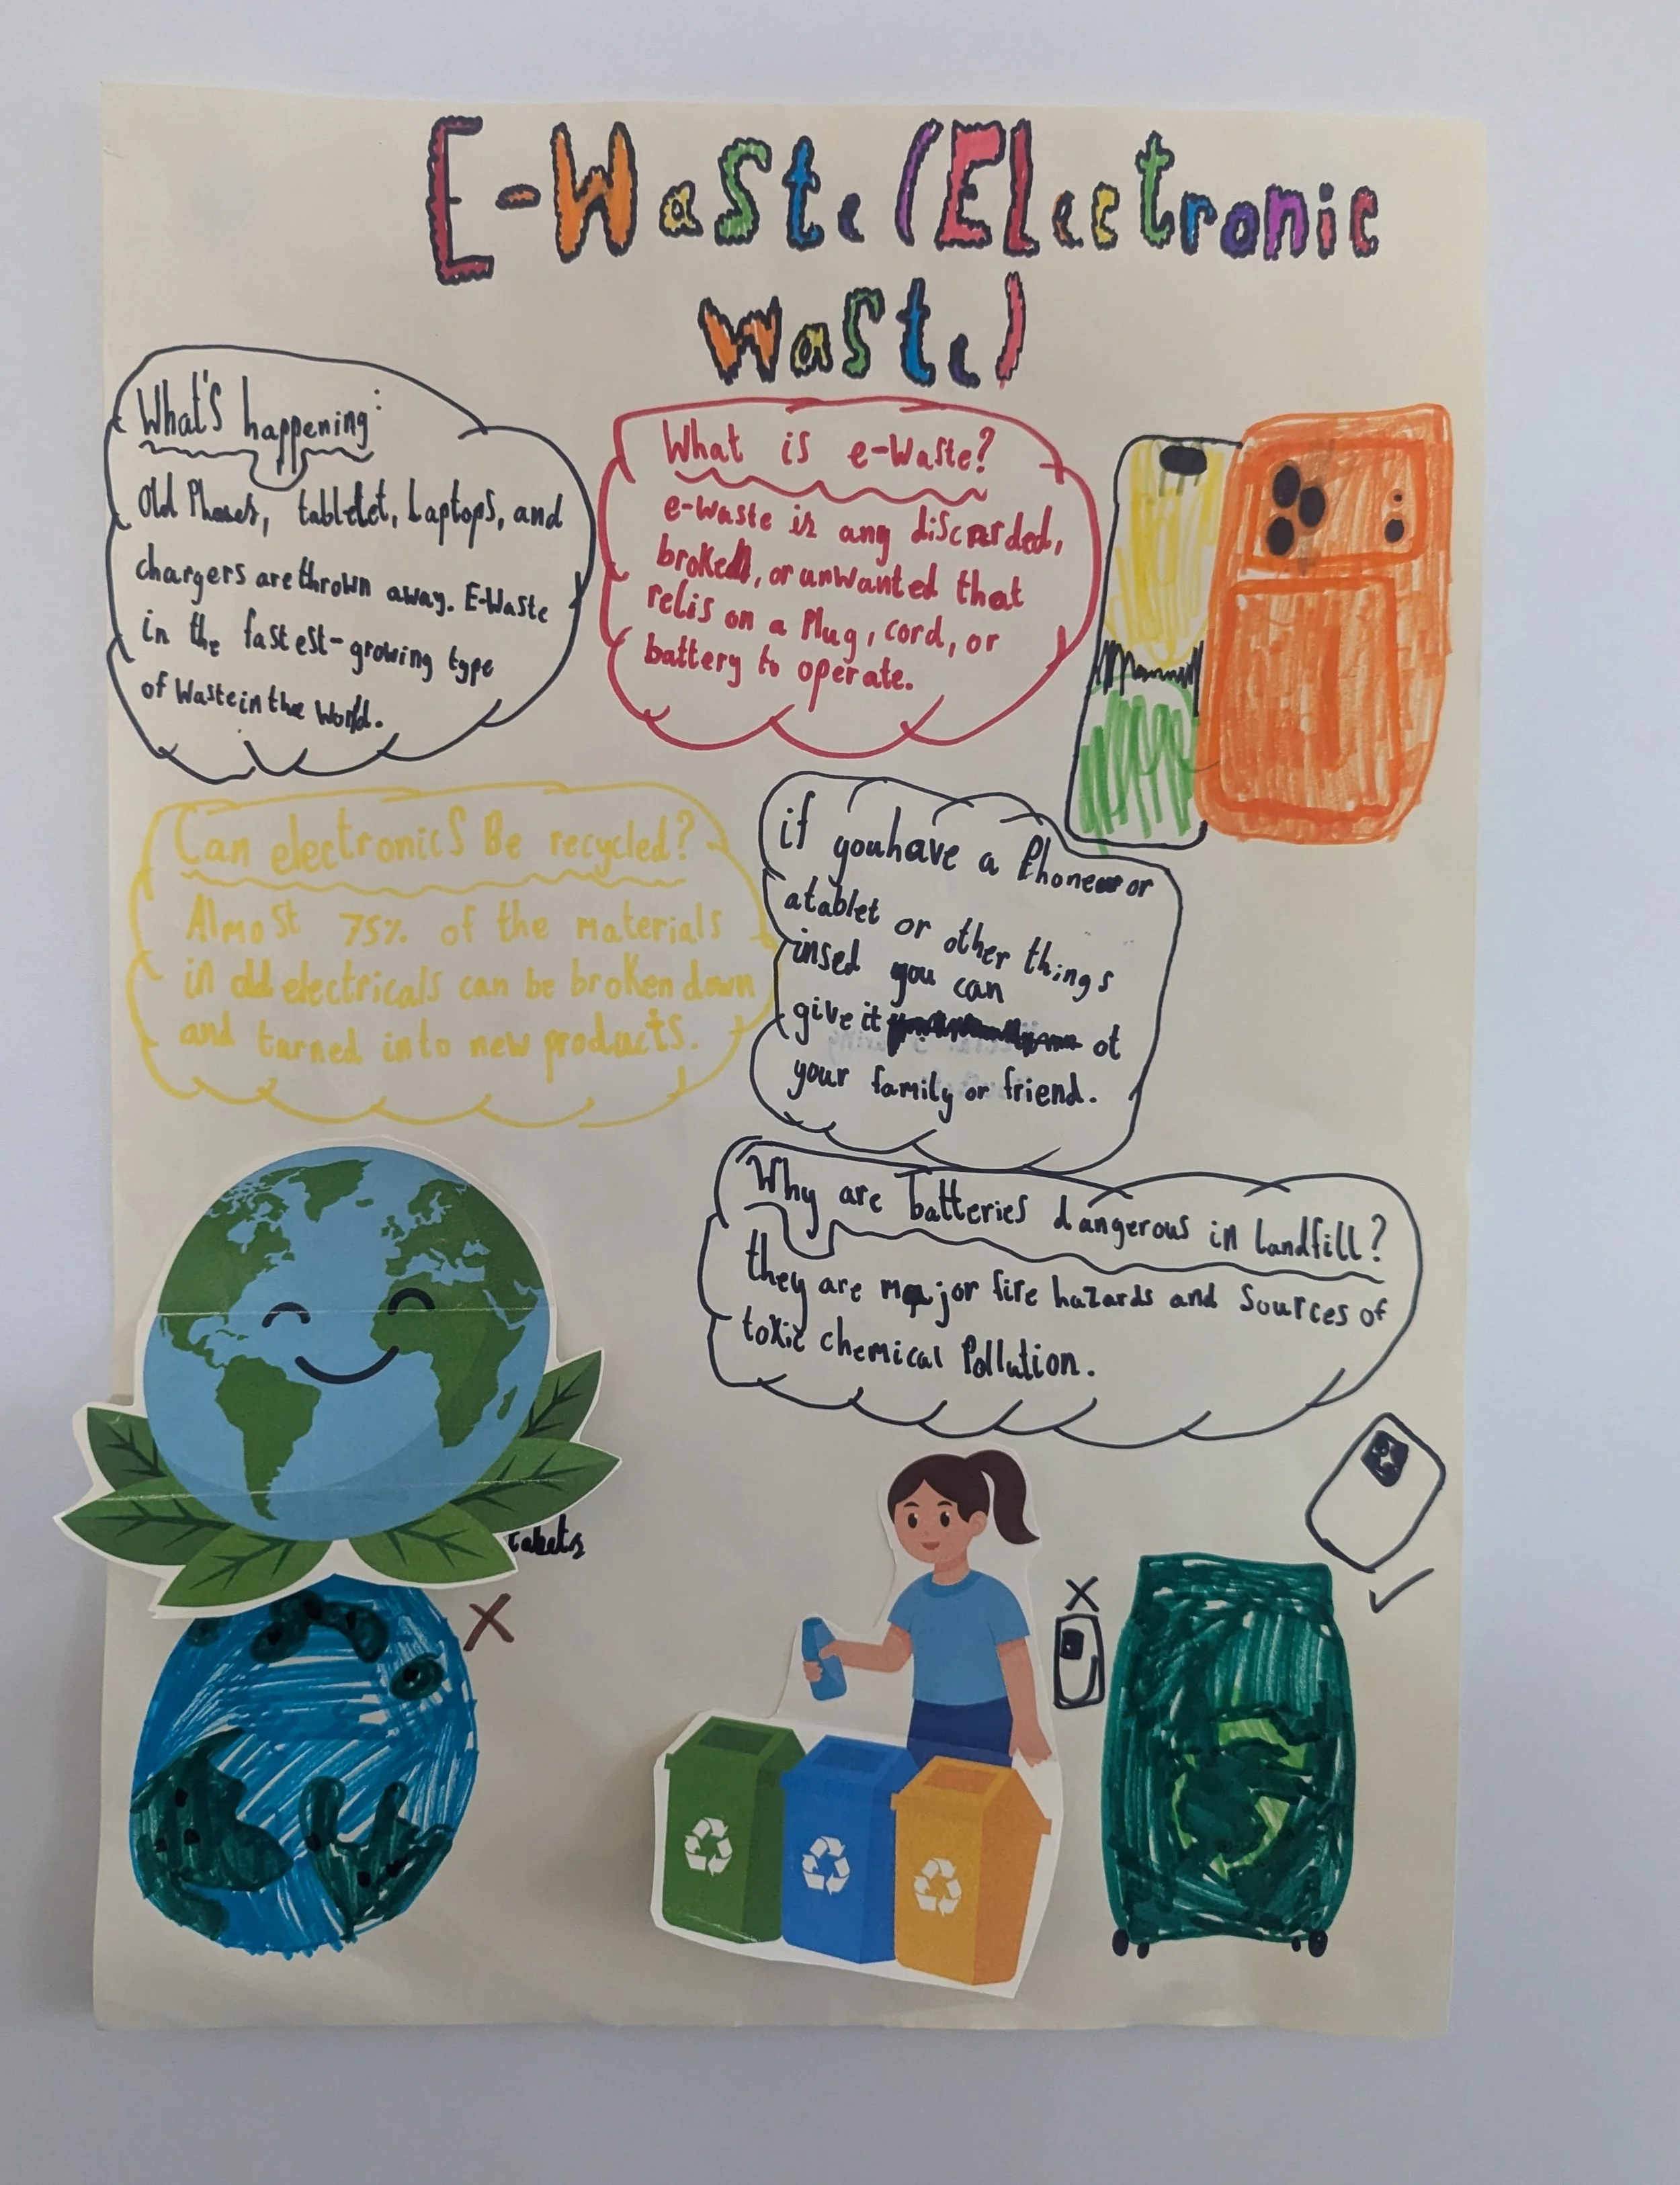 E-Waste (Electronic
waste)
What's happening:
old Phones, tabletet, Laptops, and
chargers are thrown away. E-Waste
in the fastest-growing type
of Waste in the World.
What is e-Waste?
e-waste is any discarded,
broken, or unwanted that
relis on a Plug, cord, or
battery to operate.
Can electronics Be recycled?
Almost 75% of the materials
in old electricals can be broken down
and turned into new products.
if you have a Phone or
a tablet or other things
insed you can
give it ot
your family or friend.
Why are batteries dangerous in landfill?
they are major fire hazards and Sources of
toxic chemical Pollution.